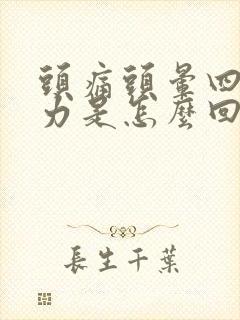 頭痛頭暈四
力是怎麼回
長生千葉